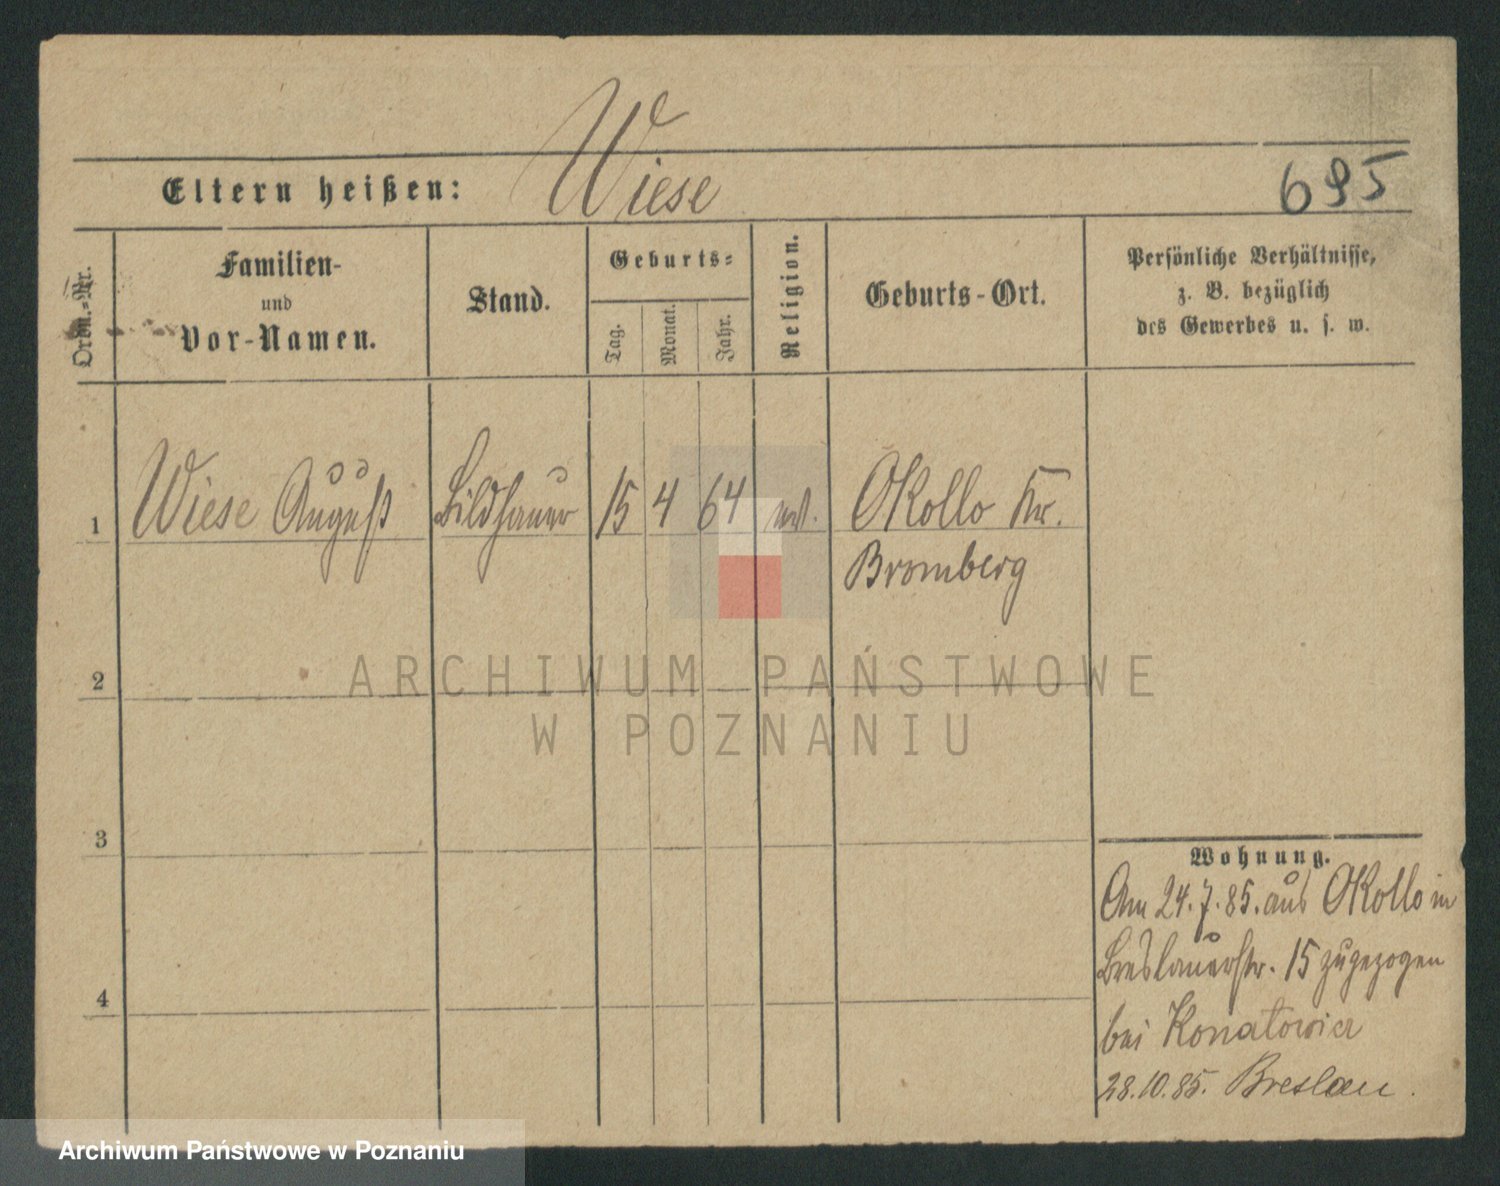 Wiese
Eltern heißen:
695
Ordn.-Nr.
Familien-
und
Vor-Namen.
Stand.
Geburts-
Tag.
Monat.
Jahr.
Religion.
Geburts-Ort.
Persönliche Verhältnisse,
z. B. bezüglich
des Gewerbes u. s. w.
1
Wiese August
Bildhauer
15
4
64
ev.
Okollo Kr.
Bromberg
2
3
4
ARCHIWUM PAŃSTWOWE
W POZNANIU
Wohnung.
Am 24.7.85. aus Okollo in
Breslauerstr. 15 zugezogen
bei
28.10.85. Breslau.
Archiwum Państwowe w Poznaniu